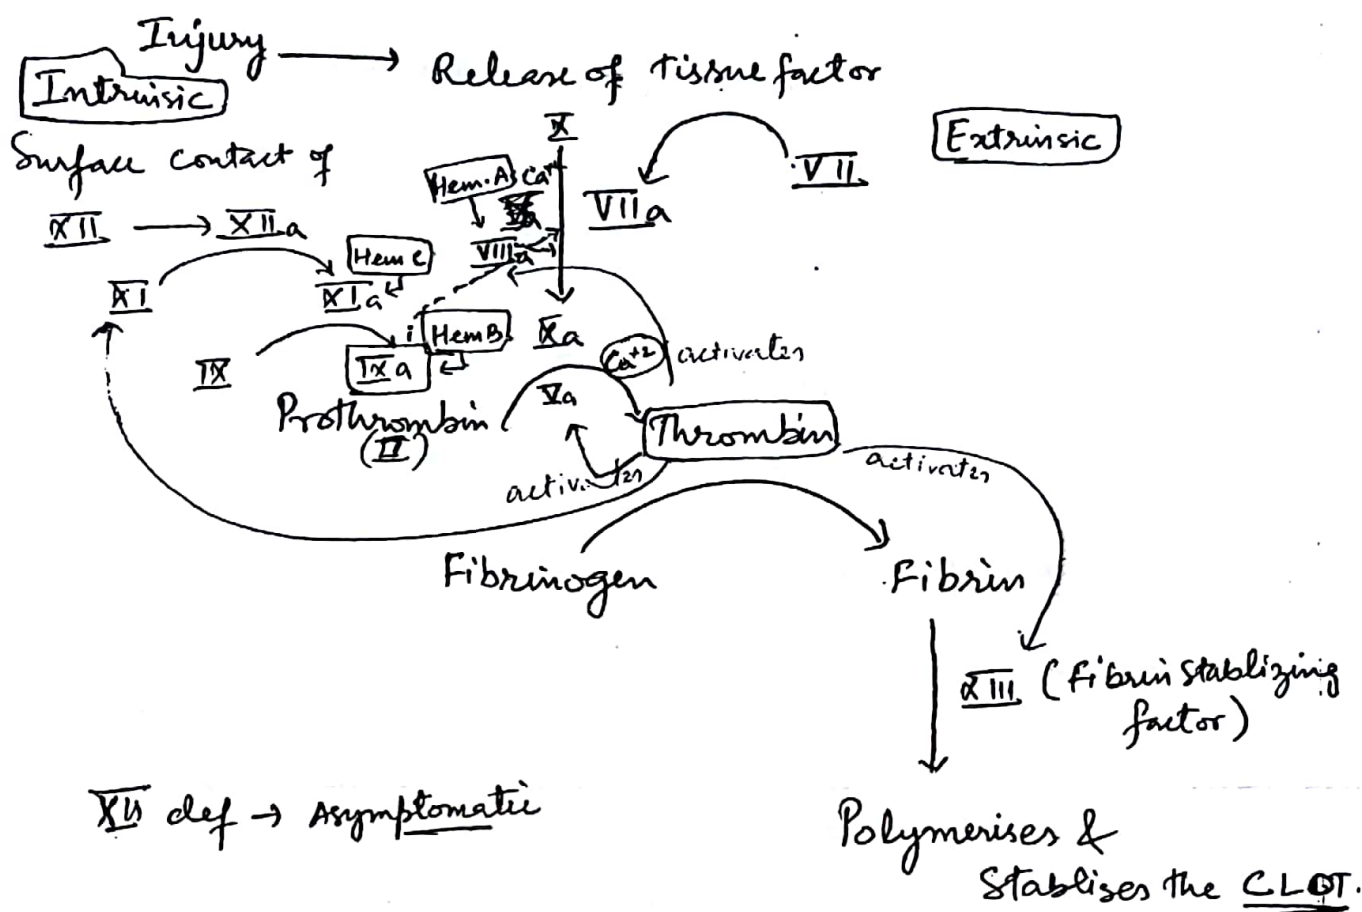 Injury → Release of tissue factor
Intrinsic
Extrinsic
Surface contact of
X
VII
VIIa
Hem. A
Ca++
XII → XIIa
VIIIa
Hem C
XI
XIa
Hem B
Xa
IX
IXa
Ca+2
activates
Va
Prothrombin
(II)
Thrombin
activates
activates
Fibrinogen
Fibrin
XIII (Fibrin Stablizing
factor)
XII def → Asymptomatic
Polymerises &
Stablises the CLOT.